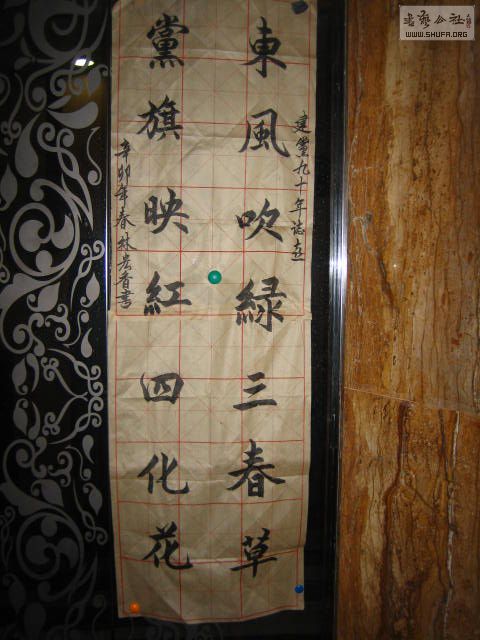 建黨九十年誌喜
東風吹綠三春草
黨旗映紅四化花
辛卯年春林宏香書
書藝公社
WWW.SHUFA.ORG